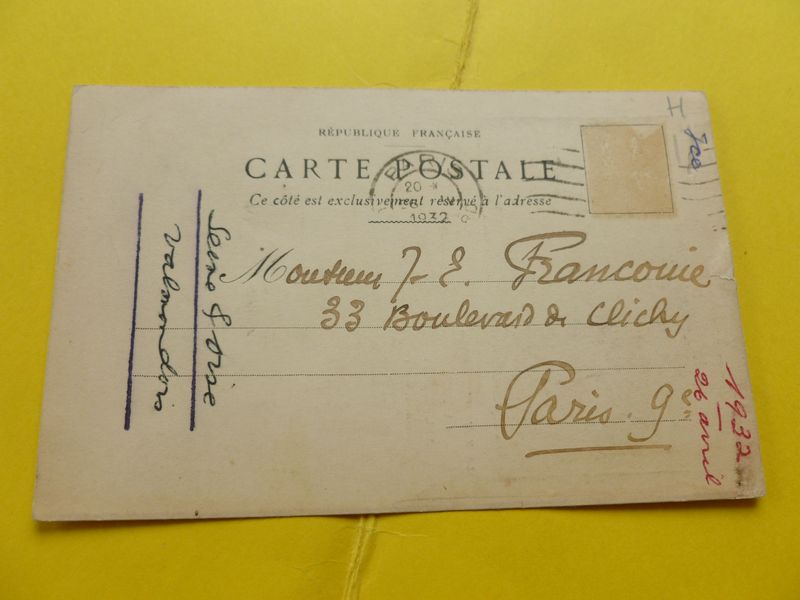 RÉPUBLIQUE FRANÇAISE
CARTE POSTALE
Ce côté est exclusivement réservé à l'adresse
PARIS
20
1932
Monsieur J. E. Franconie
33 Boulevard de Clichy
Paris. 9e
Seine & Oise
Valmondois
1932
26 avril
H